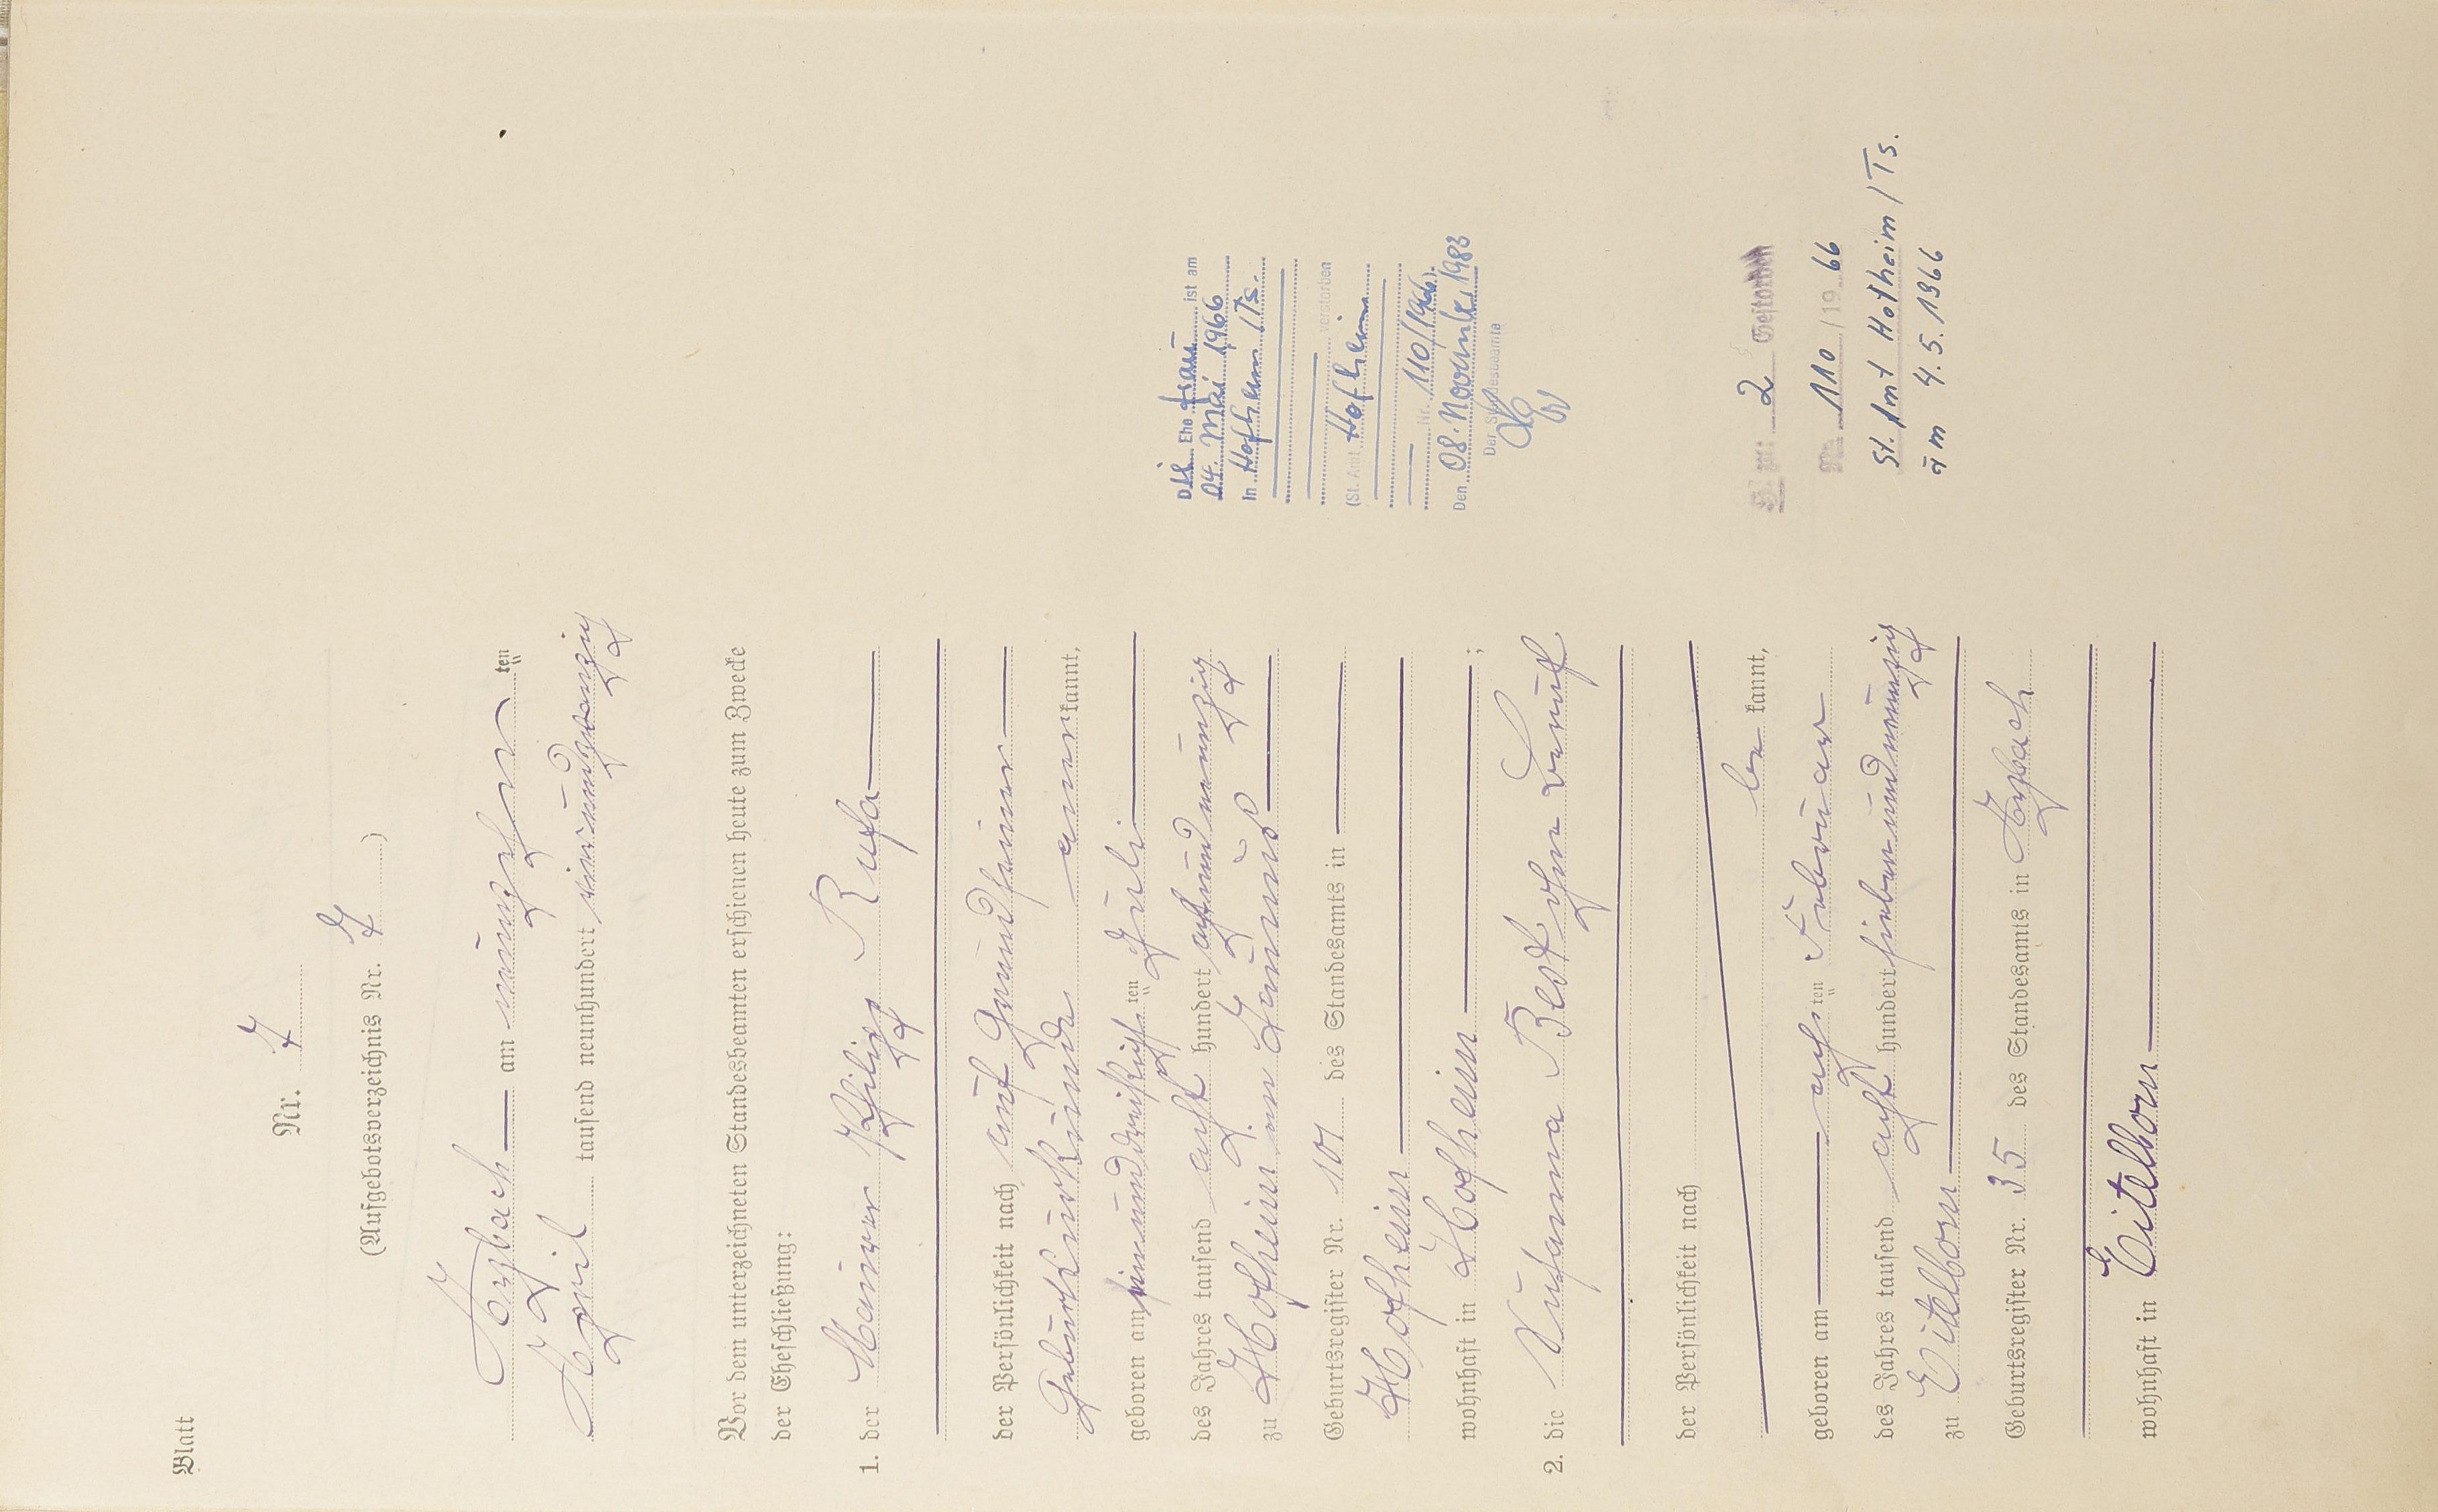 Blatt
Nr. 7
(Aufgebotsverzeichnis Nr. 7)
Arzbach am neunzehn ten
April tausend neunhundert vierundzwanzig
Vor dem unterzeichneten Standesbeamten erschienen heute zum Zwecke
der Eheschließung:
1. der Maurer Philipp Kufa
der Persönlichkeit nach auf Grund seiner
Geburtsurkunde anerkannt,
geboren am einunddreißigsten Juli
des Jahres tausend acht hundert achtundneunzig
zu Hofheim am Taunus
Geburtsregister Nr. 101 des Standesamts in
Hofheim
wohnhaft in Hofheim ;
2. die Susanna
der Persönlichkeit nach
be kannt,
geboren am achten Februar
des Jahres tausend acht hundert siebenundneunzig
zu Eitelborn
Geburtsregister Nr. 35 des Standesamts in Arzbach
wohnhaft in Eitelborn
Die Ehefrau ist am
04. Mai 1966
In Hofheim /Ts.
verstorben
(St. Amt Hofheim
Nr. 110/1966).
Den 08. November 1983
Der Standesbeamte
2 Gestorben
Nr. 110 / 19 66
St. Amt Hofheim / Ts.
am 4.5.1966